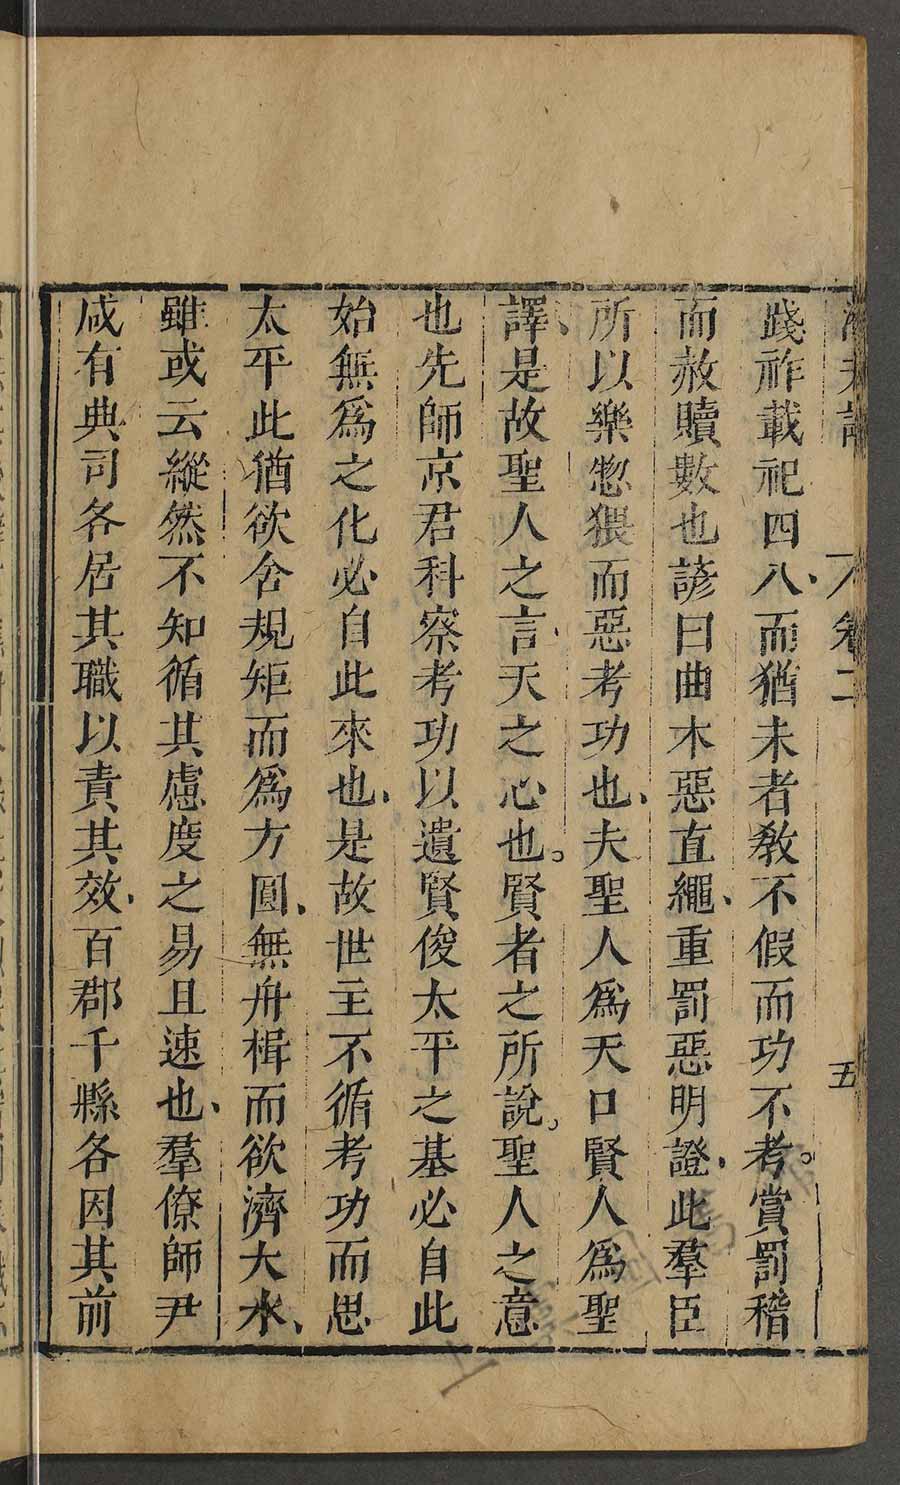 潛夫論 卷二 五
踐祚載祀四八而猶未者敎不假而功不考賞罰稽
而赦贖數也諺曰曲木惡直繩重罰惡明證此羣臣
所以樂惣猥而惡考功也夫聖人爲天口賢人爲聖
譯是故聖人之言天之心也賢者之所說聖人之意
也先師京君科察考功以遺賢俊太平之基必自此
始無爲之化必自此來也是故世主不循考功而思
太平此猶欲舍規矩而爲方圓無舟楫而欲濟大水
雖或云縱然不知循其慮度之易且速也羣僚師尹
咸有典司各居其職以責其效百郡千縣各因其前